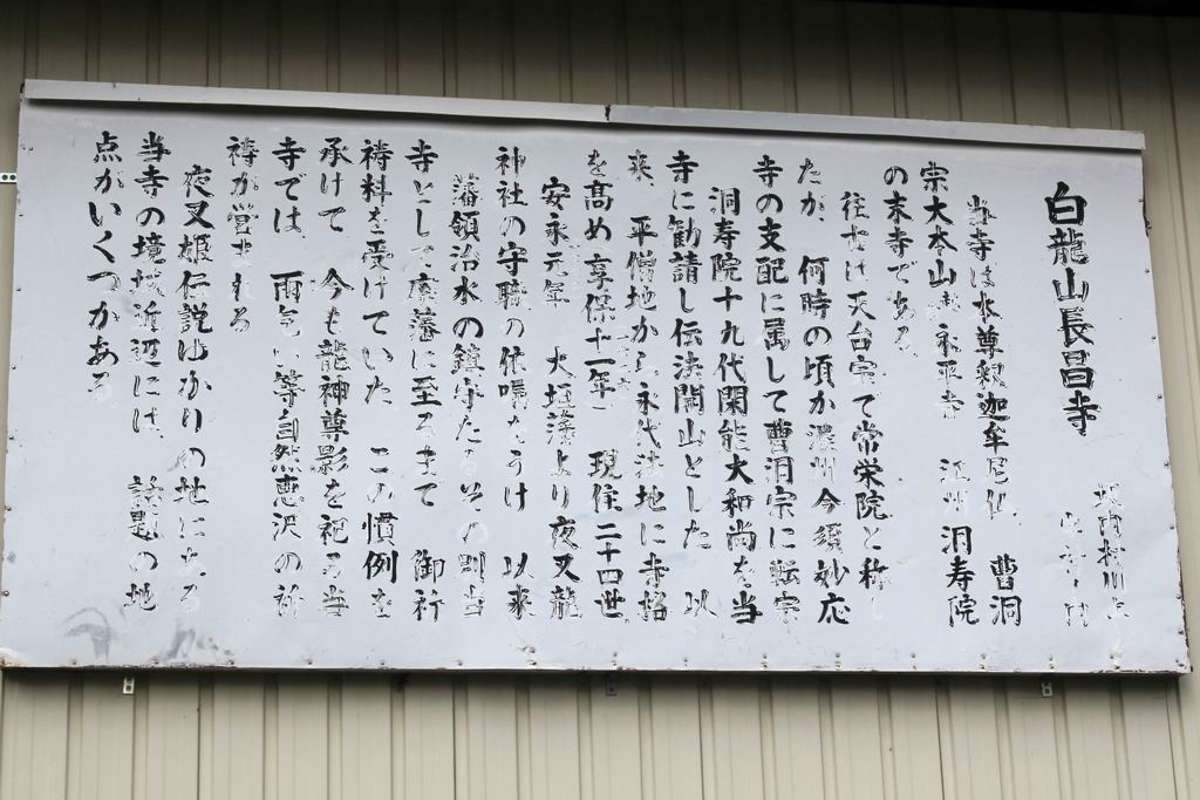 白龍山長昌寺
坂内村川上
当寺は本尊釈迦牟尼仏 曹洞
宗大本山 永平寺 江州 洞寿院
の末寺である
往古は天台宗で常栄院と称し
たが 何時の頃か濃州今須妙応
寺の支配に属して曹洞宗に転宗
洞寿院十九代閑能大和尚を当
寺に勧請し伝法開山とした 以
来、平僧地から永代法地に寺格
を髙め享保十一年 現住二十四世
安永元年 大垣藩より夜叉龍
神社の守職の依嘱をうけ 以来
藩領治水の鎮守たるその別当
寺として廃藩に至るまで 御祈
祷料を受けていた この慣例を
承けて 今も龍神尊影を祀る当
寺では、雨乞い等自然恵沢の祈
祷が営まれる
夜叉姫伝説ゆかりの地にある
当寺の境域近辺には、話題の地
点がいくつかある